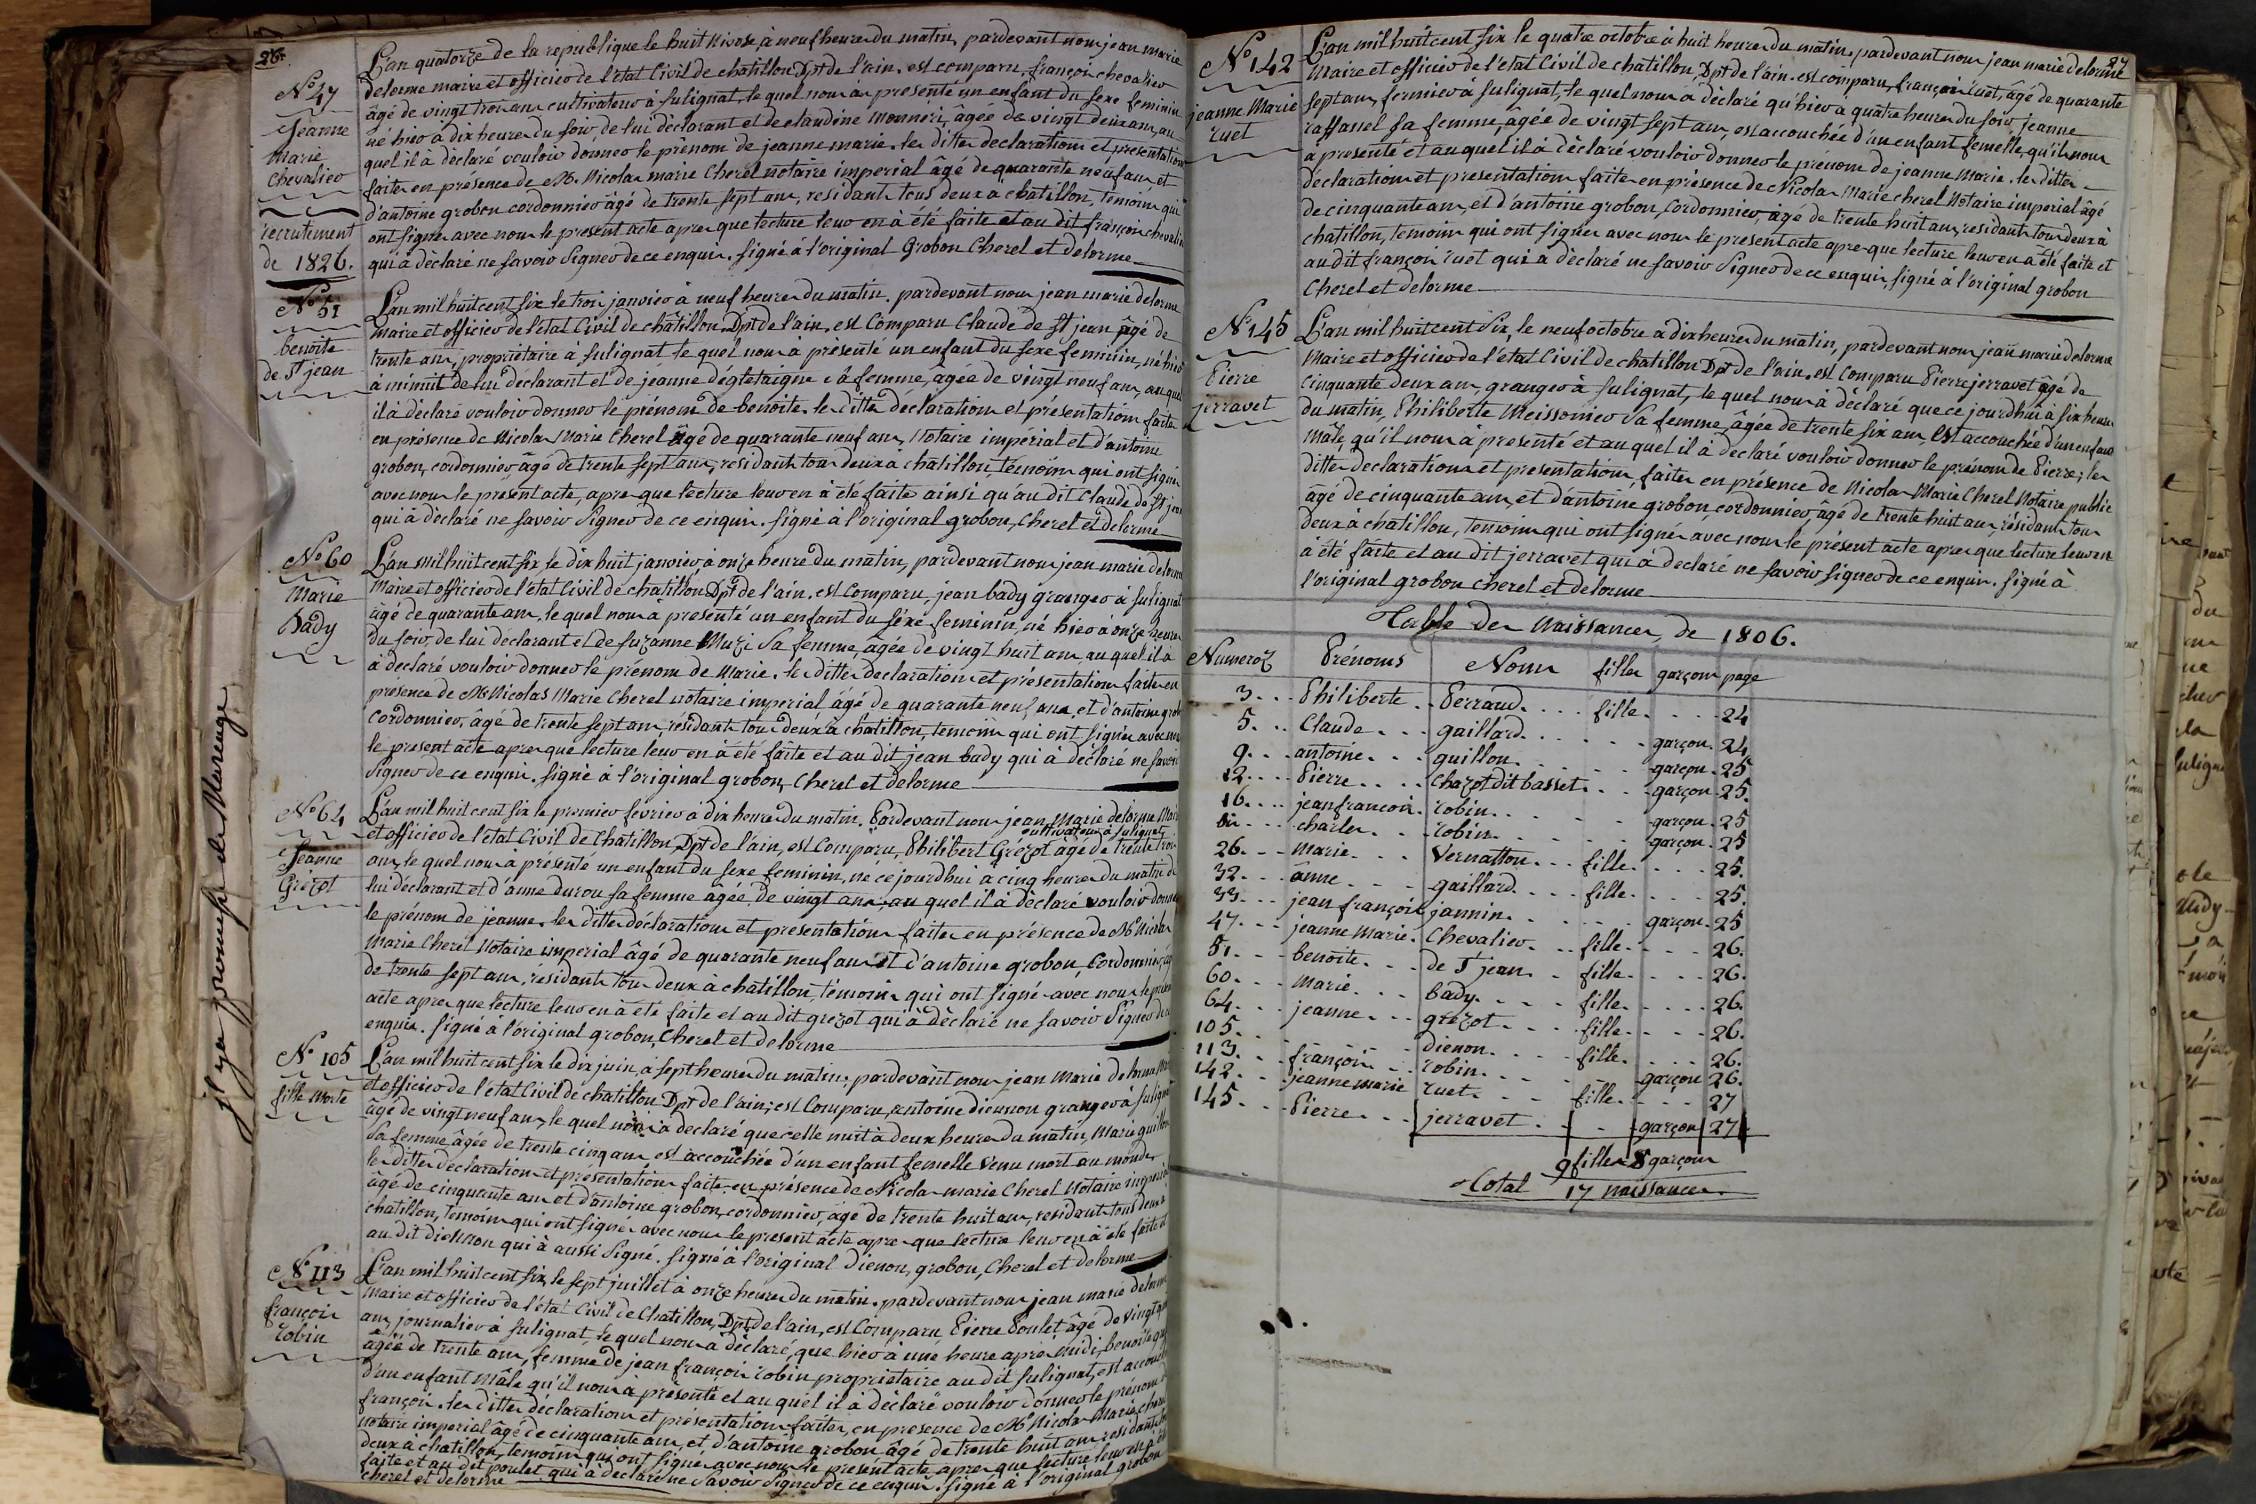 26.
N.° 47
Jeanne
Marie
Chevalier
recrutement
de 1826.
L'an quatorze de la republique le huit Nivose, à neuf heures du matin, pardevant nous jean marie
delorme maire et officier de l'etat Civil de chatillon Dpt de l'ain. est comparu, françois chevalier
âgé de vingt trois ans cultivateur à sulignat, le quel nous a presenté un enfant du sexe feminin
né hier à dix heures du soir de lui déclarant et de claudine Monneri, âgée de vingt deux ans, au
quel il à déclaré vouloir donner le prénom de jeanne marie. les dittes declarations et presentation
faites en présence de M.e Nicolas marie Cherel notaire imperial âgé de quarante neuf ans et
d'antoine grobon cordonnier âgé de trente sept ans, residants tous deux à chatillon, témoins qui
ont signés avec nous le present acte apres que lecture leur en à été faite et au dit françois chevalier
qui à déclaré ne savoir signer de ce enquis. signé à l'original Grobon Cherel et Delorme
N.° 51
benoite
de St jean
L'an mil huit cent six le trois janvier à neuf heures du matin. pardevant nous jean marie delorme
maire et officier de l'état Civil de châtillon Dpt de l'ain, est Comparu Claude de St jean âgé de
trente ans, propriétaire à sulignat le quel nous à présenté un enfant du sexe feminin, né hier
a minuit de lui déclarant et de jeanne dégletaigne sa femme, âgée de vingt neuf ans, au quel
il à déclaré vouloir donner le prénom de benoite. les dittes declarations et présentations faites
en présence de Nicolas Marie Cherel âgé de quarante neuf ans, Notaire impérial et d'antoine
grobon, cordonnier âgé de trente sept ans, residants tous deux à châtillon, témoins qui ont signé
avec nous le présent acte, apres que lecture leur en à été faite ainsi qu'au dit Claude de St jean
qui à déclaré ne savoir signer de ce enquis. signé à l'original grobon, Cherel et delorme
N.° 60
Marie
bady
L'an mil huit cent six le dix huit janvier à onze heures du matin, pardevant nous jean marie delorme
Maire et officier de l'état Civil de chatillon Dpt de l'ain. est Comparu, jean bady granger à sulignat
âgé de quarante ans, le quel nous à presenté un enfant du séxe feminin, né hier à onze heures
du soir, de lui déclarant et de suzanne Muzi sa femme, âgée de vingt huit ans, au quel il à
à déclaré vouloir donner le prénom de Marie. les dittes declarations et présentations faites en
présence de M.e Nicolas Marie Cherel notaire imperial âgé de quarante neuf ans, et d'antoine grobon
Cordonnier, âgé de trente sept ans, résidants tous deux à châtillon, temoins qui ont signés avec nous
le present acte apres que lecture leur en à été faite et au dit jean bady qui à déclaré ne savoir
signer de ce enquis. signé à l'original grobon, Cherel et delorme
N.° 64
Jeanne
Grézot
L'an mil huit cent six le premier fevrier à dix heures du matin. Pardevant nous jean Marie delorme Maire
cultivateur à sulignat
et officier de l'état Civil de Chatillon, Dpt de l'ain, est Comparu, Philibert Grézot âgé de trente trois
ans, le quel nous a presenté un enfant du sexe feminin, né ce jourdhui à cinq heures du matin de
lui déclarant et d'anne durou sa femme âgée de vingt ans, au quel il à déclaré vouloir donner
le prénom de jeanne. les dittes déclarations et presentations faites en présence de M.e Nicolas
Marie Cherel Notaire imperial âgé de quarante neuf ans et d'antoine grobon, Cordonnier âgé
de trente sept ans, residants tous deux à chatillon, témoins qui ont signé avec nous le présent
acte apres que lecture leur en à été faite et au dit grezot qui à déclaré ne savoir signer de ce
enquis. signé à l'original grobon, Cherel et delorme
N.° 105
fille Morte
L'an mil huit cent six le dix juin, à sept heures du matin, pardevant nous jean Marie delorme Maire
et officier de l'état Civil de chatillon Dpt de l'ain, est Comparu, antoine diennon granger à sulignat
âgé de vingt neuf ans, le quel nous à declaré que celle nuit à deux heures du matin, Marie guillon
sa femme âgée de trente cinq ans est accouchée d'un enfant femelle venu mort au monde
les dittes declaration et presentation faites en présence de Nicolas marie Cherel Notaire imperial
âgé de cinquante ans et d'antoine grobon, cordonnier, âgé de trente huit ans, residants tous deux à
chatillon, temoins qui ont signés avec nous le present acte apres que lecture leur en à été faite et
au dit diennon qui à aussi signé. signé à l'original Dienon, grobon, Cherel et delorme
N.° 113
françois
robin
L'an mil huit cent six le sept juillet à onze heures du matin. pardevant nous jean marie delorme
maire et officier de l'état Civil de Chatillon, Dpt de l'ain, est Comparu Pierre Poulet âgé de vingt
ans, journalier à sulignat, le quel nous a déclaré, que hier à une heure apres midi, benoite
âgée de trente ans, femme de jean françois robin propriétaire au dit sulignat, est accouchée
d'un enfant mâle qu'il nous à présenté et au quel il à déclaré vouloir donner le prénom de
françois. les dittes déclarations et présentations faites, en presence de M.e Nicolas Marie cherel
notaire imperial âgé de cinquante ans, et d'antoine grobon âgé de trente huit ans, residants tous
deux à chatillon, temoins qui ont signé avec nous le présent acte apres que lecture leur en à été
faite et au dit poulet qui à déclaré ne savoir signer de ce enquis. signé à l'original grobon
cherel et delorme
il y a promesse de Mariage
27
N.° 142
jeanne Marie
ruet
L'an mil huit cent six le quatre octobre à huit heures du matin, pardevant nous jean marie delorme
Maire et officier de l'état Civil de chatillon, Dpt de l'ain. est comparu, françois ruet, âgé de quarante
sept ans, fermier à sulignat, le quel nous à déclaré qu'hier à quatre heures du soir, jeanne
raffanel sa femme, âgée de vingt sept ans, est accouchée d'un enfant femelle, qu'il nous
à presenté et au quel il à déclaré vouloir donner le prenom de jeanne Marie. les dittes
declaration et presentation faites en présence de Nicolas Marie cherel Notaire imperial âgé
de cinquante ans, et d'antoine grobon, Cordonnier, âgé de trente huit ans, residants tous deux à
chatillon, temoins qui ont signés avec nous le present acte apres que lecture leur en à été faite et
au dit françois ruet qui à déclaré ne savoir signer de ce enquis, signé à l'original grobon
Cherel et delorme
N.° 145
Pierre
jerravet
L'an mil huit cent Six, le neuf octobre à dix heures du matin, pardevant nous jean marie delorme
Maire et officier de l'état Civil de chatillon Dpt de l'ain. est Comparu Pierre jerravet âgé de
Cinquante deux ans, granger à sulignat, le quel nous à déclaré que ce jourdhui à six heures
du matin, Philiberte Meissonier sa femme, âgée de trente six ans, est accouchée d'un enfant
mâle, qu'il nous à présenté et au quel il à déclaré vouloir donner le prénom de Pierre; les
dittes declarations et presentations, faites en présence de Nicolas Marie Cherel Notaire public
âgé de cinquante ans, et d'antoine grobon, cordonnier, âgé de trente huit ans, résidants tous
deux à chatillon, temoins qui ont signés avec nous le présent acte apres que lecture leur en
à été faite et au dit jerravet qui à déclaré ne savoir signer de ce enquis. signé à
l'original grobon cherel et delorme
Table des Naissances, de 1806.
Numeroz Prénoms Noms filles garçons page
3 Philiberte Perraud fille 24
5 Claude gaillard garçon 24
9 antoine guillon garçon 25
12 Pierre Chazot dit basset garçon 25
16 jean francois robin garçon 25
bis charles robin garçon 25
26 Marie Vernatton fille 25
32 anne gaillard fille 25
33 jean françois jannin garçon 25
47 jeanne Marie Chevalier fille 26
51 benoite de St jean fille 26
60 Marie bady fille 26
64 jeanne grezot fille 26
105 dienon fille 26
113 françois robin garçon 26
142 jeanne marie ruet fille 27
145 Pierre jerravet garçon 27
9 filles 8 garçons
Total 17 naissances